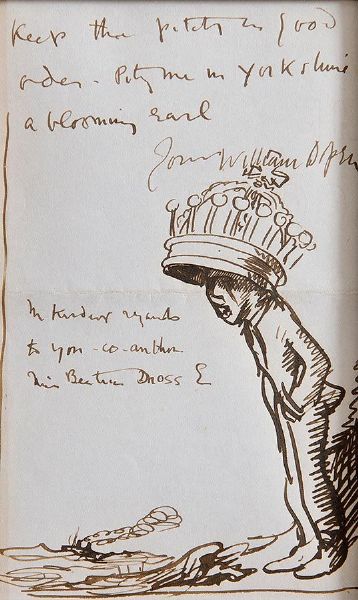 Keep the pitch in good
order - Pity me in Yorkshire
a blooming earl
Yours William Orpen
kindest regards
to your co-author
Miss Beatrice